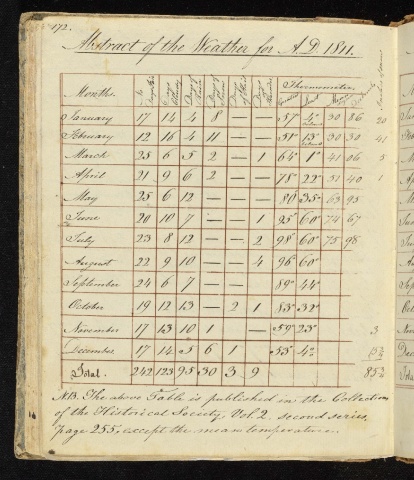 172.
Abstract of the Weather for A.D 1811.
Months. Days Days Days Thermometer
January 17 14 4 8 — — 51° 4° 30 86 20
February 12 16 4 11 — — 51° 13° 30 30 41
March 25 6 5 2 — 1 64° 1° 41 06 5
April 21 9 6 2 — — 78° 22° 51 40 1
May 25 6 12 — — 86 35° 63 95
June 20 10 7 — — 1 95° 60° 74 67
July 23 8 12 — — 2 98° 60° 75 98
August 22 9 10 — — 4 96° 60°
September 24 6 7 — — — 89° 44°
October 19 12 13 — 2 1 83° 32°
November 17 13 10 1 — 59° 23° 3
December 17 14 5 6 1 — 53° 4°
Total. 242 123 95 30 3 9
N.B. The above Table is published in the Collection
of the Historical Society, Vol. 2. second series,
page 255, except the mean temperature.